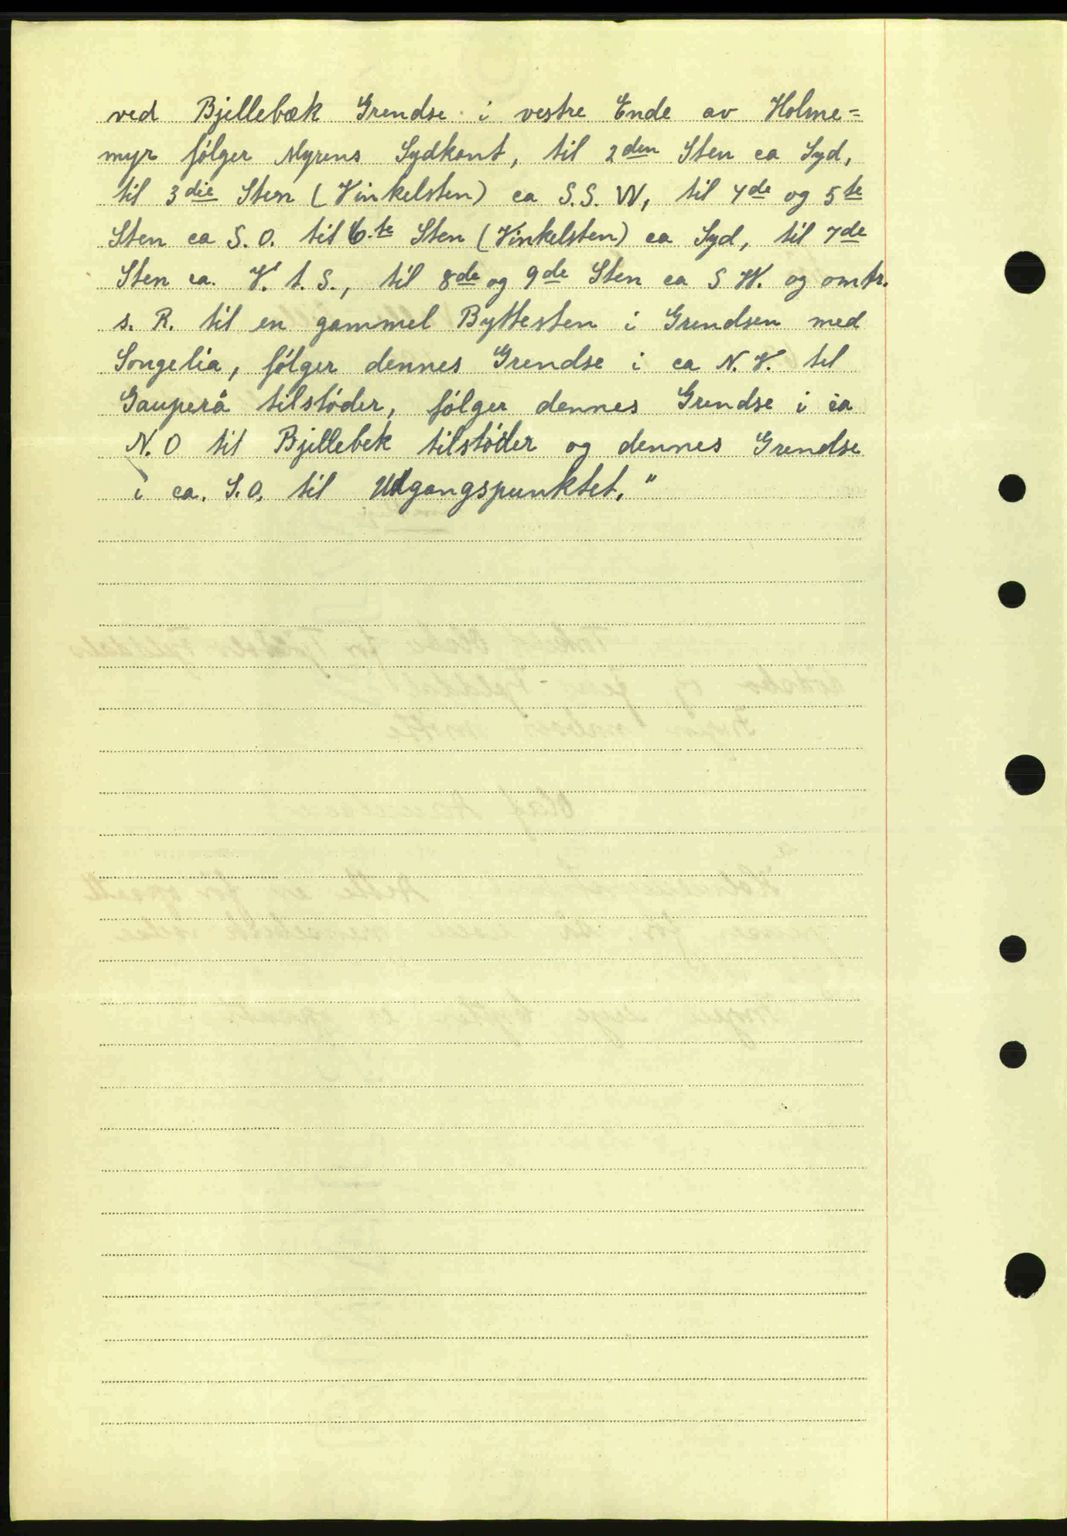 ved Bjellebæk Grendse i vestre Ende av Holme=
myr følger Myrens Sydkant, til 2den Sten ca Syd,
til 3die Sten (Vinkelsten) ca S.S. W, til 4de og 5te
Sten ca S.O. til 6.te Sten (Vinkelsten) ca Syd, til 7de
Sten ca. V. t. S., til 8de og 9de Sten ca S W. og omtr.
s. R. til en gammel Byttesten i Grendsen med
Songelia, følger dennes Grendse i ca N.V. til
Gauperå tilstøder, følger dennes Grendse i ca
N.O til Bjellebek tilstøder og dennes Grendse
i ca. S.O. til Udgangspunktet."